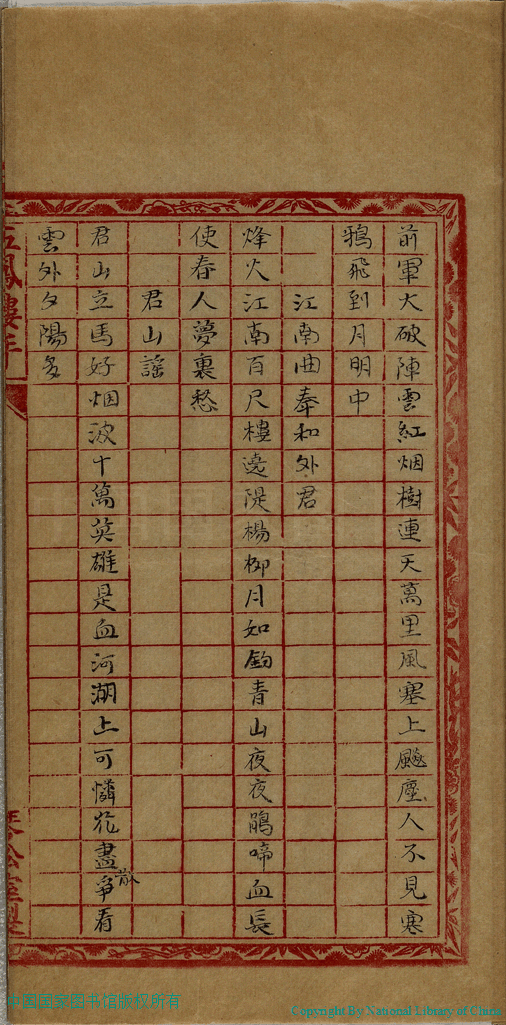 前軍大破陣雲紅烟樹連天萬里風塞上飈塵人不見寒
鴉飛到月明中
江南曲奉和外君
烽火江南百尺樓遶隄楊栁月如鈎青山夜夜鵑啼血長
使春人夢裏愁
君山謠
君山立馬好烟波十萬英雄是血河湖上可憐花盡散爭看
雲外夕陽多
中国国家图书馆版权所有
Copyright By National Library of China